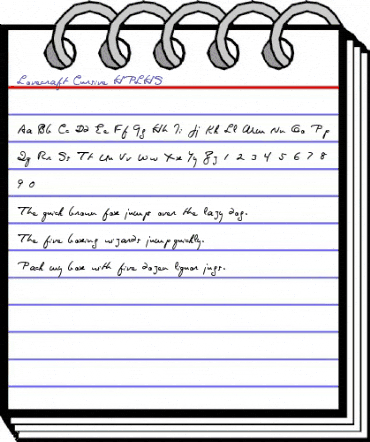 Lovecraft Cursive HPLHS
Aa Bb Cc Dd Ee Ff Gg Hh Ii Jj Kk Ll Mm Nn Oo Pp
Qq Rr Ss Tt Uu Vv Ww Xx Yy Zz 1 2 3 4 5 6 7 8
9 0
The quick brown fox jumps over the lazy dog.
The five boxing wizards jump quickly.
Pack my box with five dozen liquor jugs.